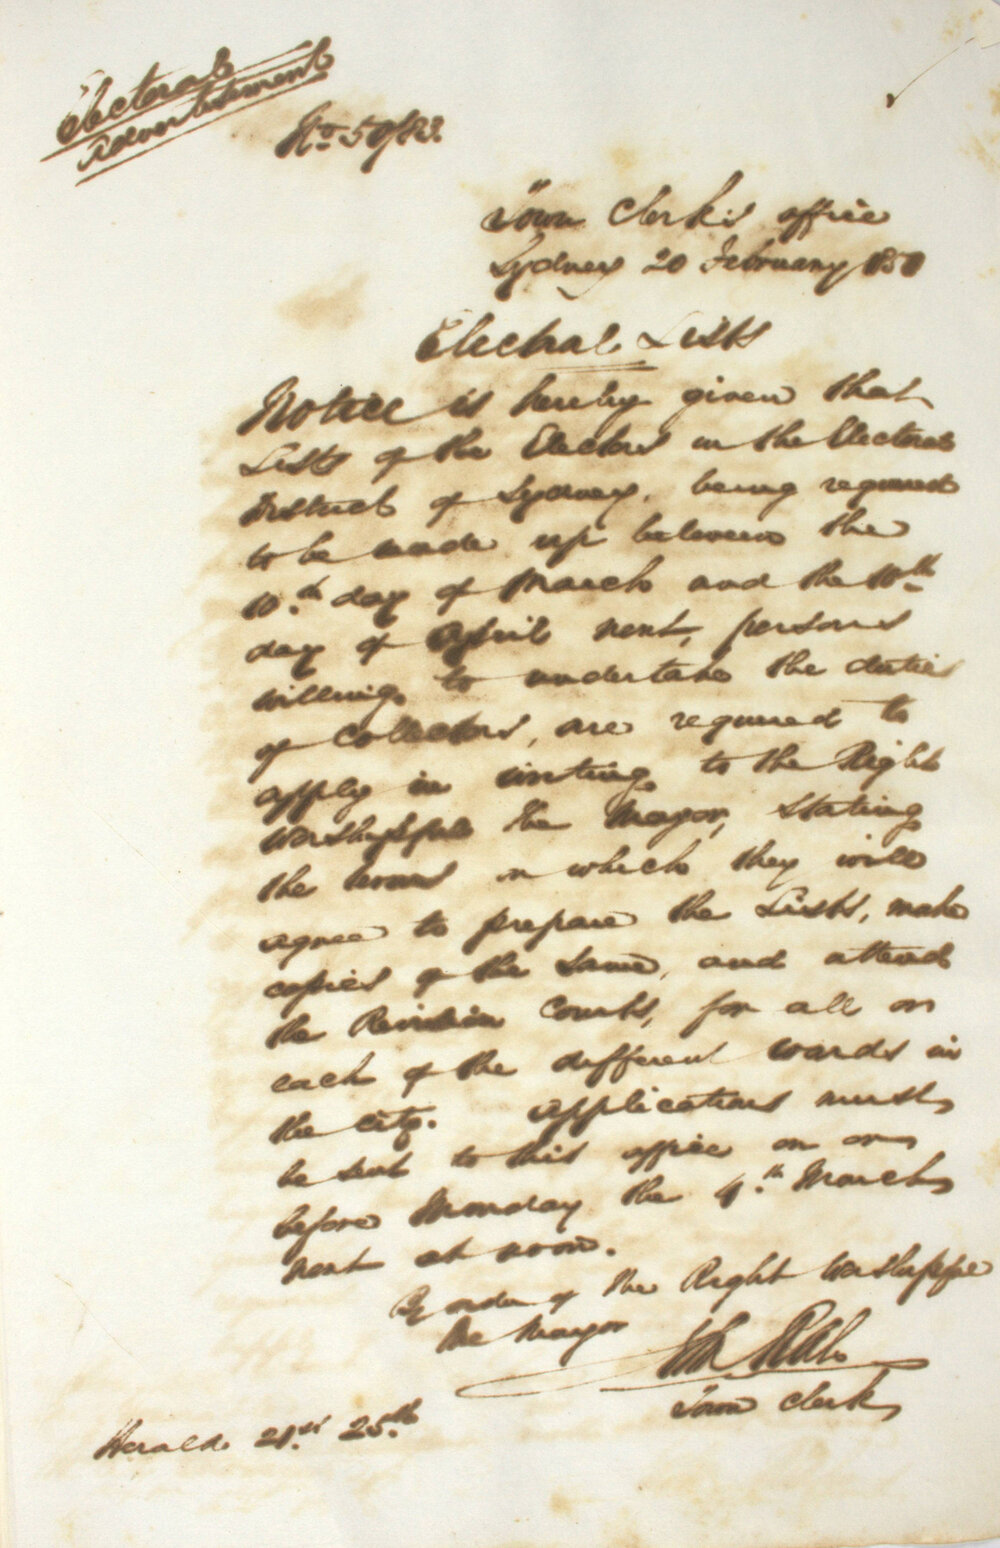 Electoral
Advertisement
No. 50/83.
Town Clerk's office
Sydney 20 February 1850
Electoral Lists
Notice is hereby given that
Lists of the Electors in the Electoral
District of Sydney, being required
to be made up between the
10.th day of March and the 10th
day of April next, persons
willing to undertake the duties
of Collectors, are required to
apply in writing to the Right
Worshipful the Mayor, stating
the terms on which they will
agree to prepare the Lists, make
copies of the same, and attend
the Revision Courts, for all or
each of the different wards in
the city. Applications must
be sent to this office on or
before Monday the 4.th March
next at noon.
By order of the Right Worshipful
the Mayor
Town Clerk
Herald 21.st 25.th